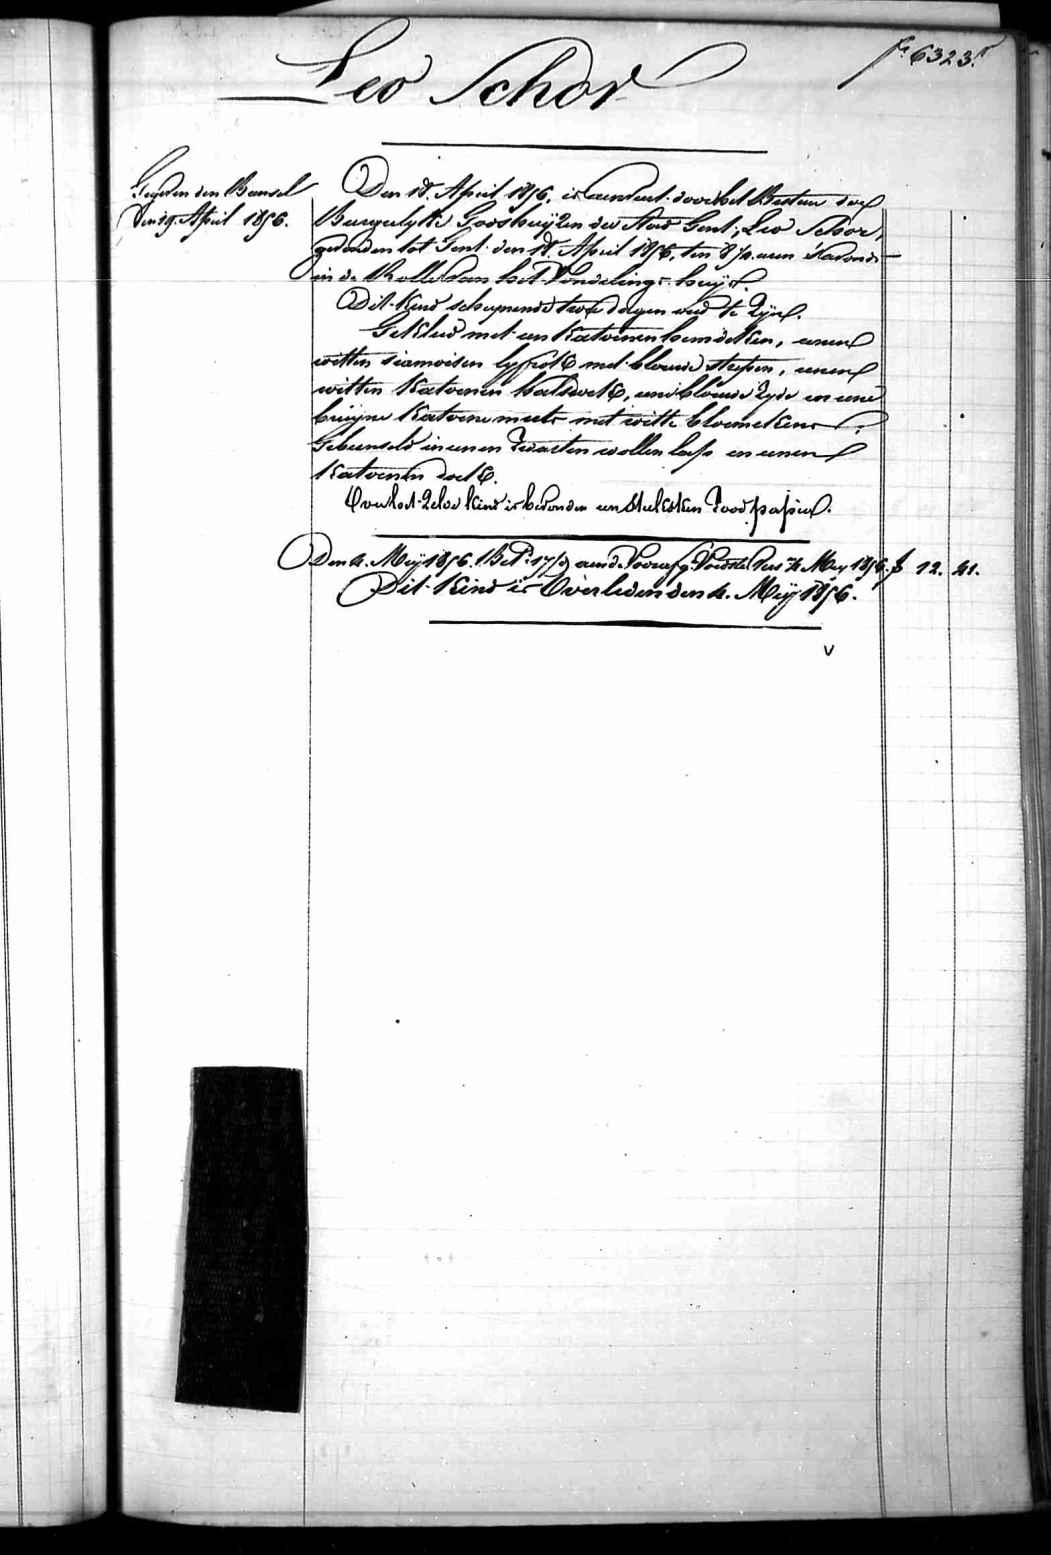 f° 6323.
Leo Schor
den 19. April 1856.
Den 18. April 1856, is aenveert door het Bestuur der
Burgerlyke Godshuyzen der Stad Gent, Leo Schor,
gevonden tot Gent den 18. April 1856, ten 8 1/2 uren 's avonds
in de Rolle van het Vondelings-huys.
Dit Kind schynende twee dagen oud te zyn.
Gekleed met een Katoenen hemdeken, eenen
witten siamoisen lyfrok met blauwe strepen, eenen
witten Katoenen halsdoek, een blauwe zyde en eene
bruyne Katoene muts met witte bloemekens.
Gebunseld in eenen zwarten wollen lap en eenen
Katoenen doek.
Op het zelve kind is bevonden een stuksken rood papier.
Den 4. Mey 1856. Bet. 17/9 aen de Voedster Mey 1856. f 12. 41.
Dit Kind is Overleden den 4. Mey 1856.
v